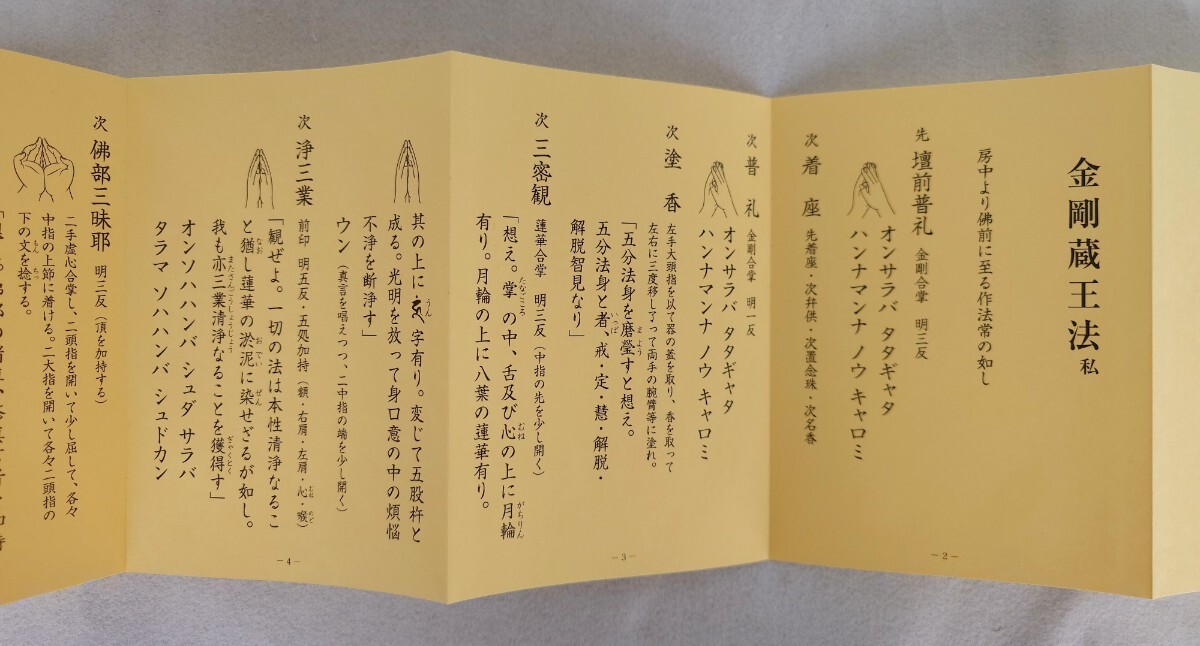 金剛蔵王法 私
房中より佛前に至る作法常の如し
先 壇前普礼 金剛合掌 明三反
オンサラバ タタギャタ
ハンナマンナ ノウ キャロミ
次 着座 先着座・次弁供・次置念珠・次名香
－2－
次 普礼 金剛合掌 明一反
オンサラバ タタギャタ
ハンナマンナ ノウ キャロミ
次 塗香 左手大頭指を以て器の蓋を取り、香を取って
左右に三度移し了って両手の腕臂等に塗れ。
「五分法身を磨瑩すと想え。
五分法身と者、戒・定・慧・解脱・
解脱智見なり」
次 三密観 蓮華合掌 明三反（中指の先を少し開く）
「想え。掌の中、舌及び心の上に月輪
有り。月輪の上に八葉の蓮華有り。
－3－
其の上に 字有り。変じて五股杵と
成る。光明を放って身口意の中の煩悩
不浄を断浄す」
ウン（真言を唱えつつ、二中指の端を少し開く）
次 浄三業 前印 明五反・五処加持（額・右肩・左肩・心・喉）
「観ぜよ。一切の法は本性清浄なるこ
と猶し蓮華の淤泥に染せざるが如し。
我も亦三業清浄なることを獲得す」
オンソハハンバ シュダ サラバ
タラマ ソハハンバ シュドカン
－4－
次 佛部三昧耶 明三反（頂を加持する）
二手虚心合掌し、二頭指を開いて少し屈して、各々
中指の上節に着ける。二大指を開いて各々二頭指の
下の文を捻する。